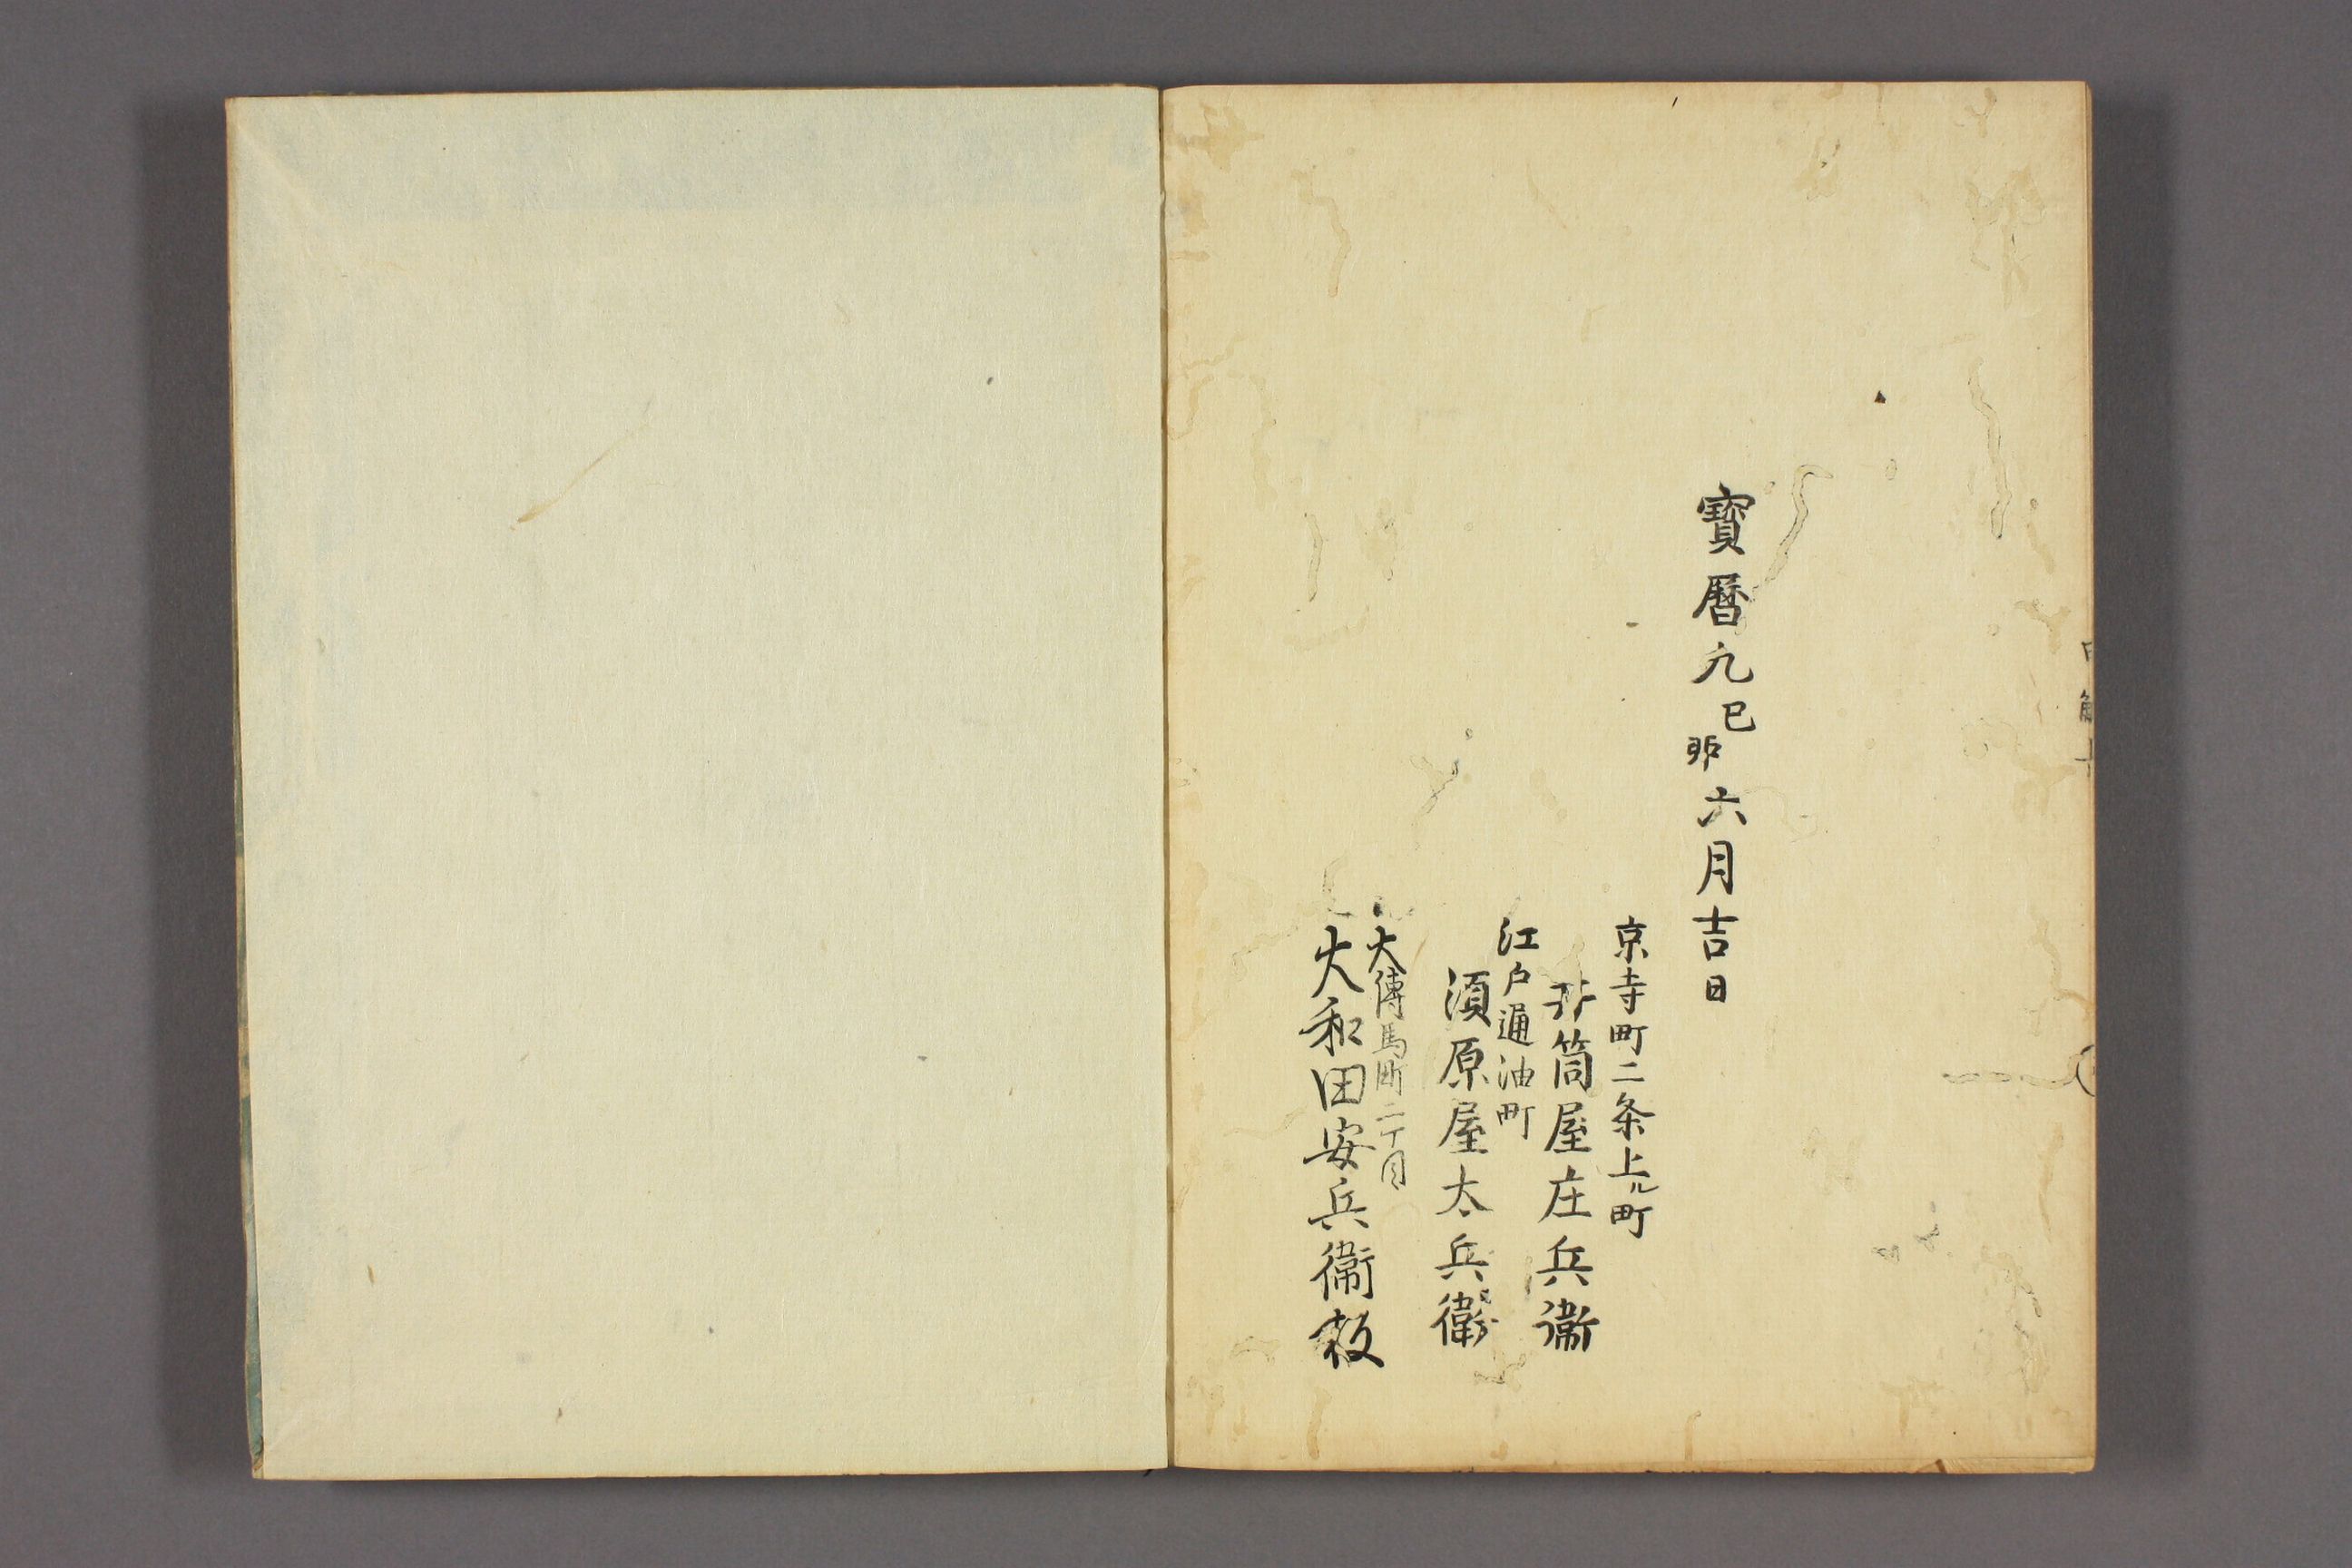 寳暦九己卯六月吉日
京寺町二条上ル町
井筒屋庄兵衞
江戸通油町
須原屋太兵衛
大傳馬町二丁目
大和田安兵衞板